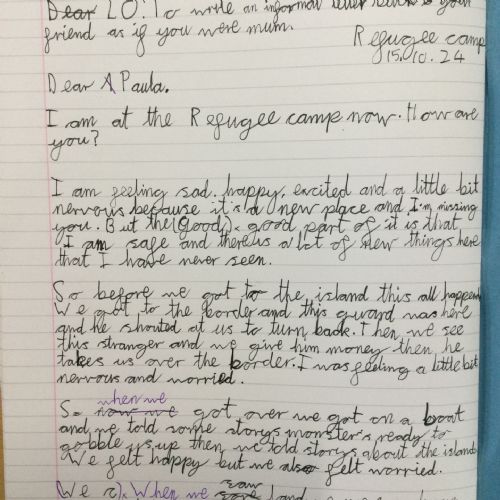 Dear LO: To write an informal letter back to your
friend as if you were mum.
Refugee camp
15.10.24
Dear A Paula.
I am at the Refugee camp now. How are
you?
I am feeling sad. happy, excited and a little bit
nervous because it's a new place and I'm missing
you. But the (Good) good part of it is that
I am safe and there is a lot of new things here
that I have never seen.
So before we got to the island this all happen
We got to the border and this guard was here
and he shouted at us to turn back. Then we see
this stranger and we give him money then he
takes us over the border. I was feeling a little bit
nervous and worried.
when we
So now we got over we got on a boat
and we told some storys monster's ready to
gobble us up then we told storys about the island
We felt happy but we also felt worried.
saw
(We c). When we land